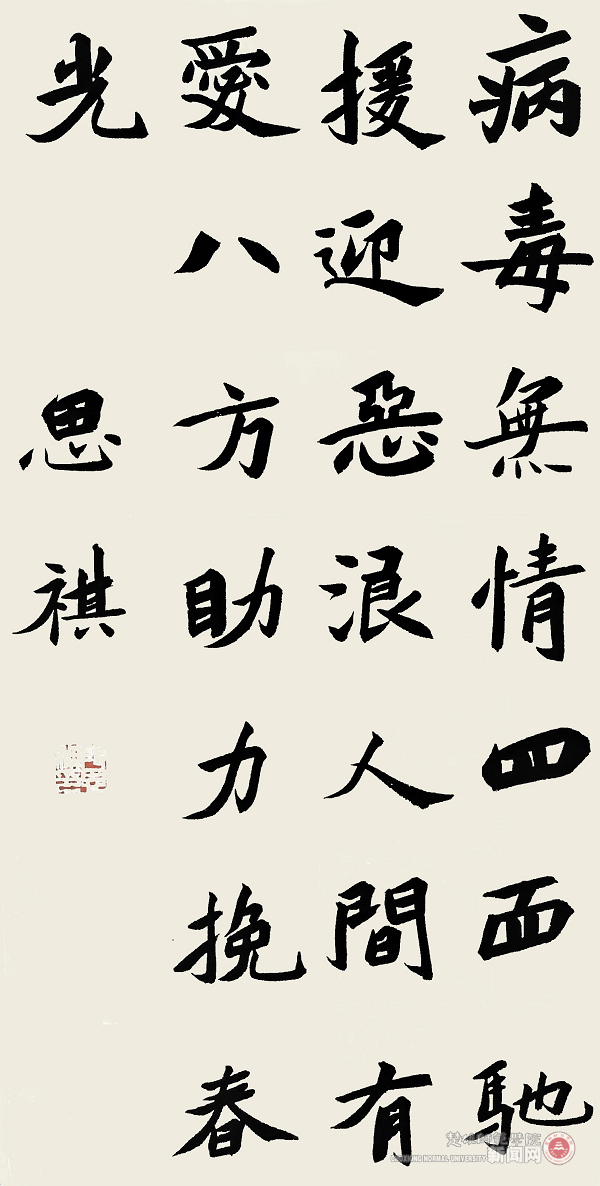 病毒無情四面馳
援迎惡浪人間有
愛八方助力挽春
光
思祺
新闻网